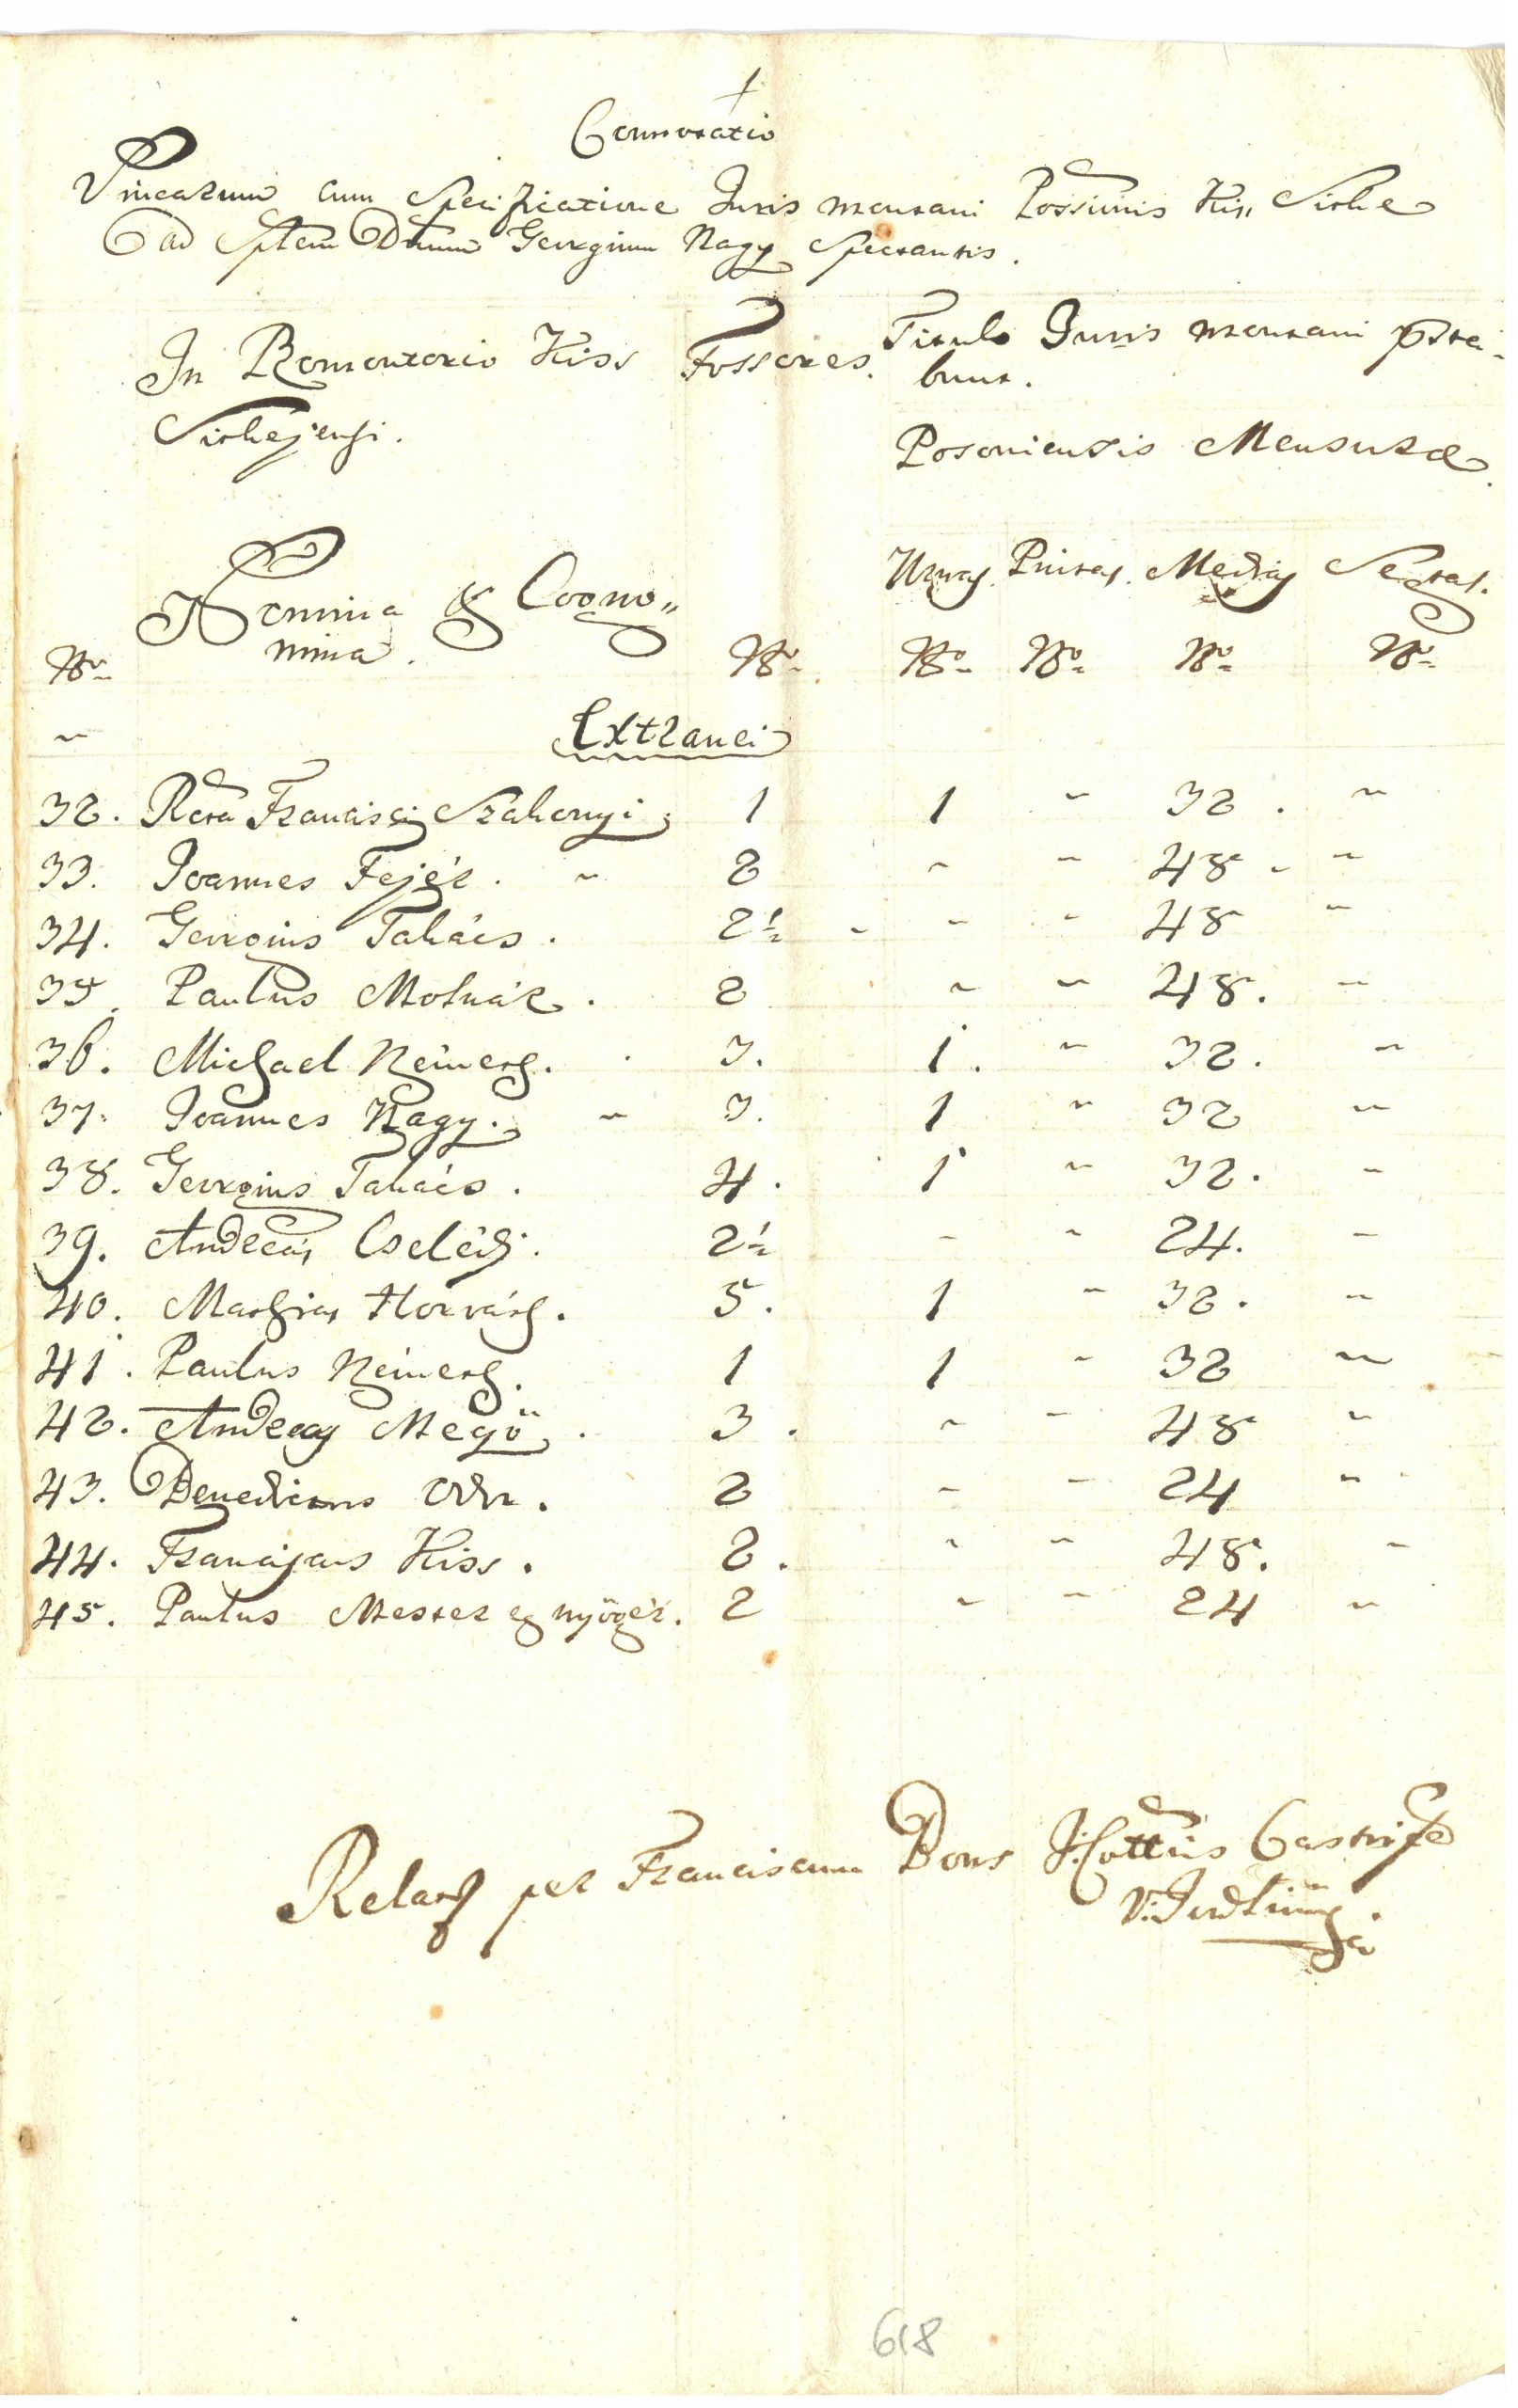 Connotatio
Vinearum cum Specificatione Juris montani Possionis Kiss Sithe
ad Sptem Dnum Georgium Nagy Spectantis.
In Promontorio Kiss Fossores. Titulo Juris montani pstа-
Sithejensi. bunt.
Posoniensis Mensuræ.
Nomina & Cogno„ Urnas Pintas. Medias Seytas.
mina.
Nro Nro Nro Nro Nro Nro
~ Extranei
32. Rcta Francisci Szakonyi. 1 1 ~ 32. ~
33. Joannes Fejér. ~ 2 ~ ~ 48. ~
34. Georgius Takács. 2½ ~ ~ 48 ~
35. Paulus Molnár. 2 ~ ~ 48. ~
36. Michael Németh. 3. 1. ~ 32. ~
37. Joannes Nagy. ~ 3. 1 ~ 32 ~
38. Georgius Takács. 4. 1 ~ 32. ~
39. Andreas Cselédi. 2½ ~ ~ 24. ~
40. Mathias Horváth. 5. 1 ~ 32. ~
41. Paulus Németh. 1 1 ~ 32 ~
42. Andreas Megö. 3. ~ ~ 48 ~
43. Benedictus Odor. 2 ~ ~ 24 ~
44. Franciscus Kiss. 2. ~ ~ 48. ~
45. Paulus Mester egnyögér. 2 ~ ~ 24 ~
Relath per Franciscum Bors I: Cottus Castrife
V: Judlium
618